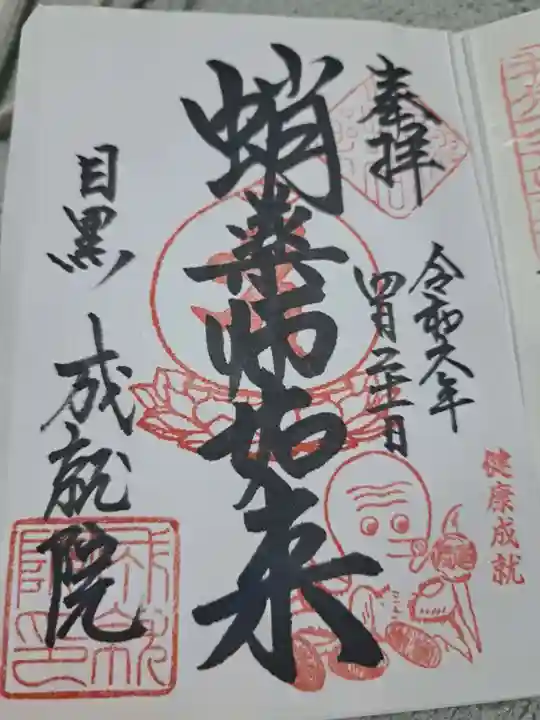 奉拝
令和六年
四月二十一日
蛸薬師如来
目黒 成就院
健康成就